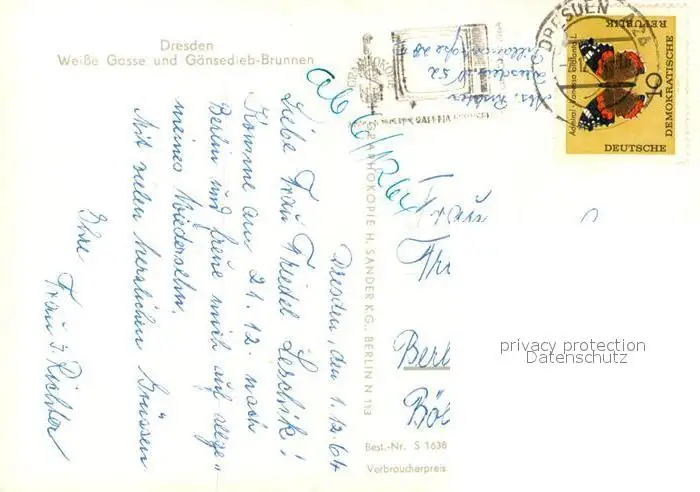 Dresden
Weiße Gasse und Gänsedieb-Brunnen
ab 6/12 64
Dresden, den 1.12.64
Liebe Frau Friedel Leschik!
Komme am 21.12. nach
Berlin und freue mich auf allge„
meines Wiedersehn.
Mit vielen herzlichen Grüssen
Ihre
Frau J. Richter
GRAPHOKOPIE H. SANDER K.G., BERLIN N 113
Best.-Nr. S 1638
Verbraucherpreis
DRESDEN
DEUTSCHE
DEMOKRATISCHE
REPUBLIK
10
Frau
Berl
Böl
privacy protection
Datenschutz